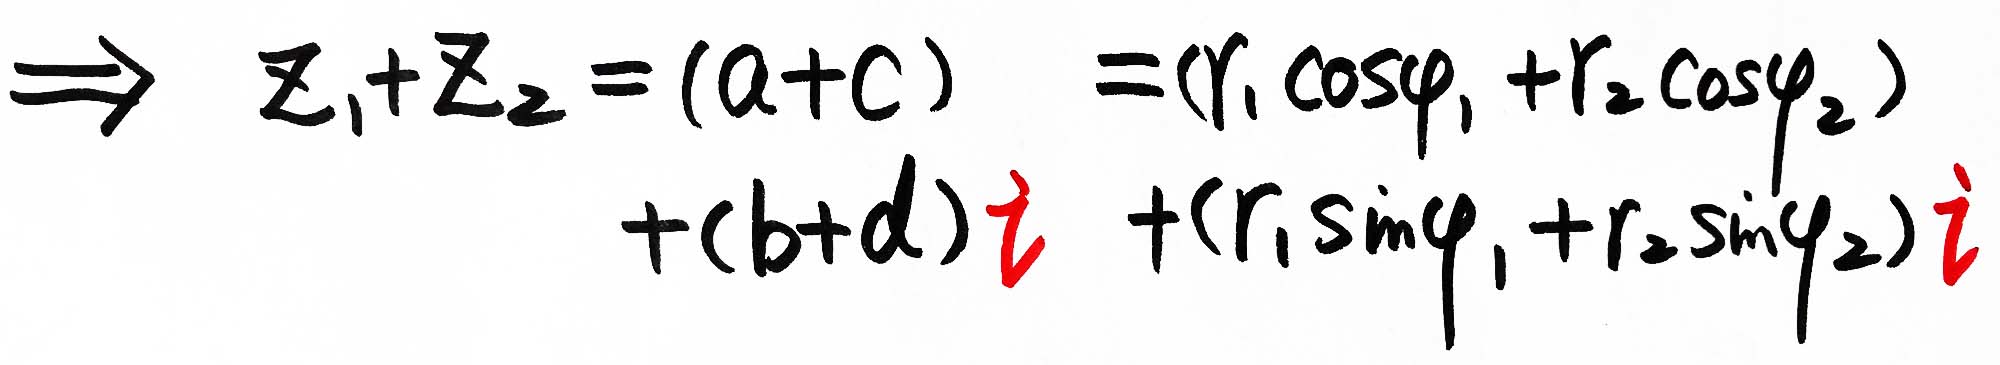 ⟹ z₁+z₂ = (a+c) = (r₁ cosφ₁ + r₂ cosφ₂)
+(b+d)i +(r₁ sinφ₁ + r₂ sinφ₂)i